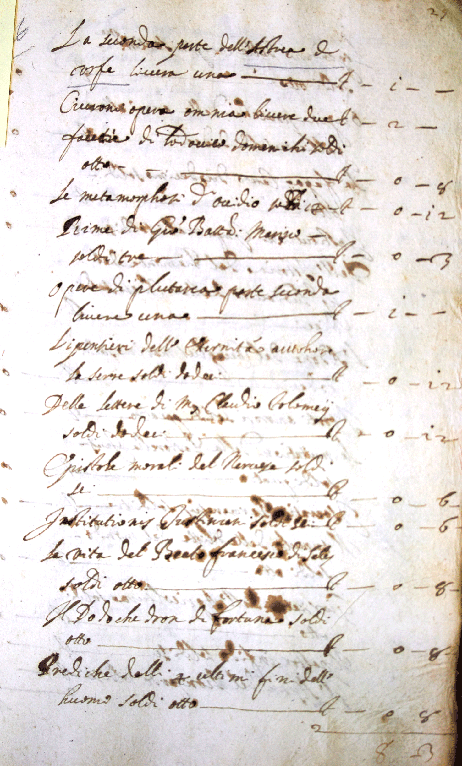 La seconda parte dell'Astrea di
livera una — £ — 1 — —
Ciceronis opera omnia livere due £ — 2 —
facetie di Lodovico domenichi soldi
otto — £ — 0 — 8
Le metamorphosi d'Ovidio soldi 12 — £ — 0 — 12
Rime di Gio Batta Marino —
soldi tre — £ — 0 — 3
Opere di plutarco parte seconda
livere una — £ — 1 — —
I pensieri dell'Eternità authore
la serre soldi dodeci — £ — 0 — 12
Delle lettere di M. Claudio Tolomey
soldi dodeci — £ — 0 — 12
Epistole morali del Nervese soldi
sei — £ — 0 — 6
Institutiones Justinian soldi sei £ — 0 — 6
La vita del Beato francesco di Sales
soldi otto — £ — 0 — 8
Il Dodechedron di fortuna soldi
otto — £ — 0 — 8
Prediche delli 4 ultimi fini dell'
huomo soldi otto — £ — 0 8
8 3